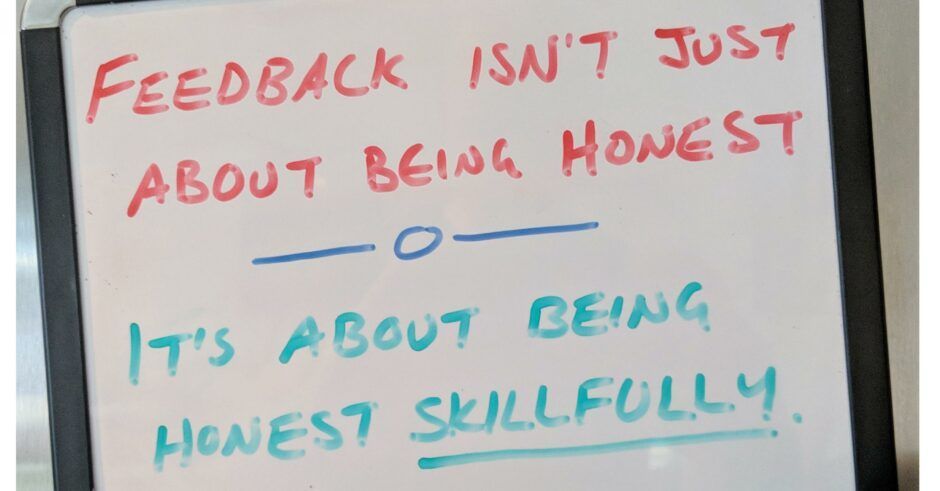 FEEDBACK ISN'T JUST
ABOUT BEING HONEST
IT'S ABOUT BEING
HONEST SKILLFULLY.